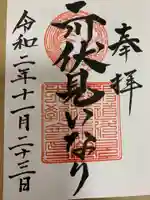 奉拝
伏見いなり
令和二年十一月二十三日